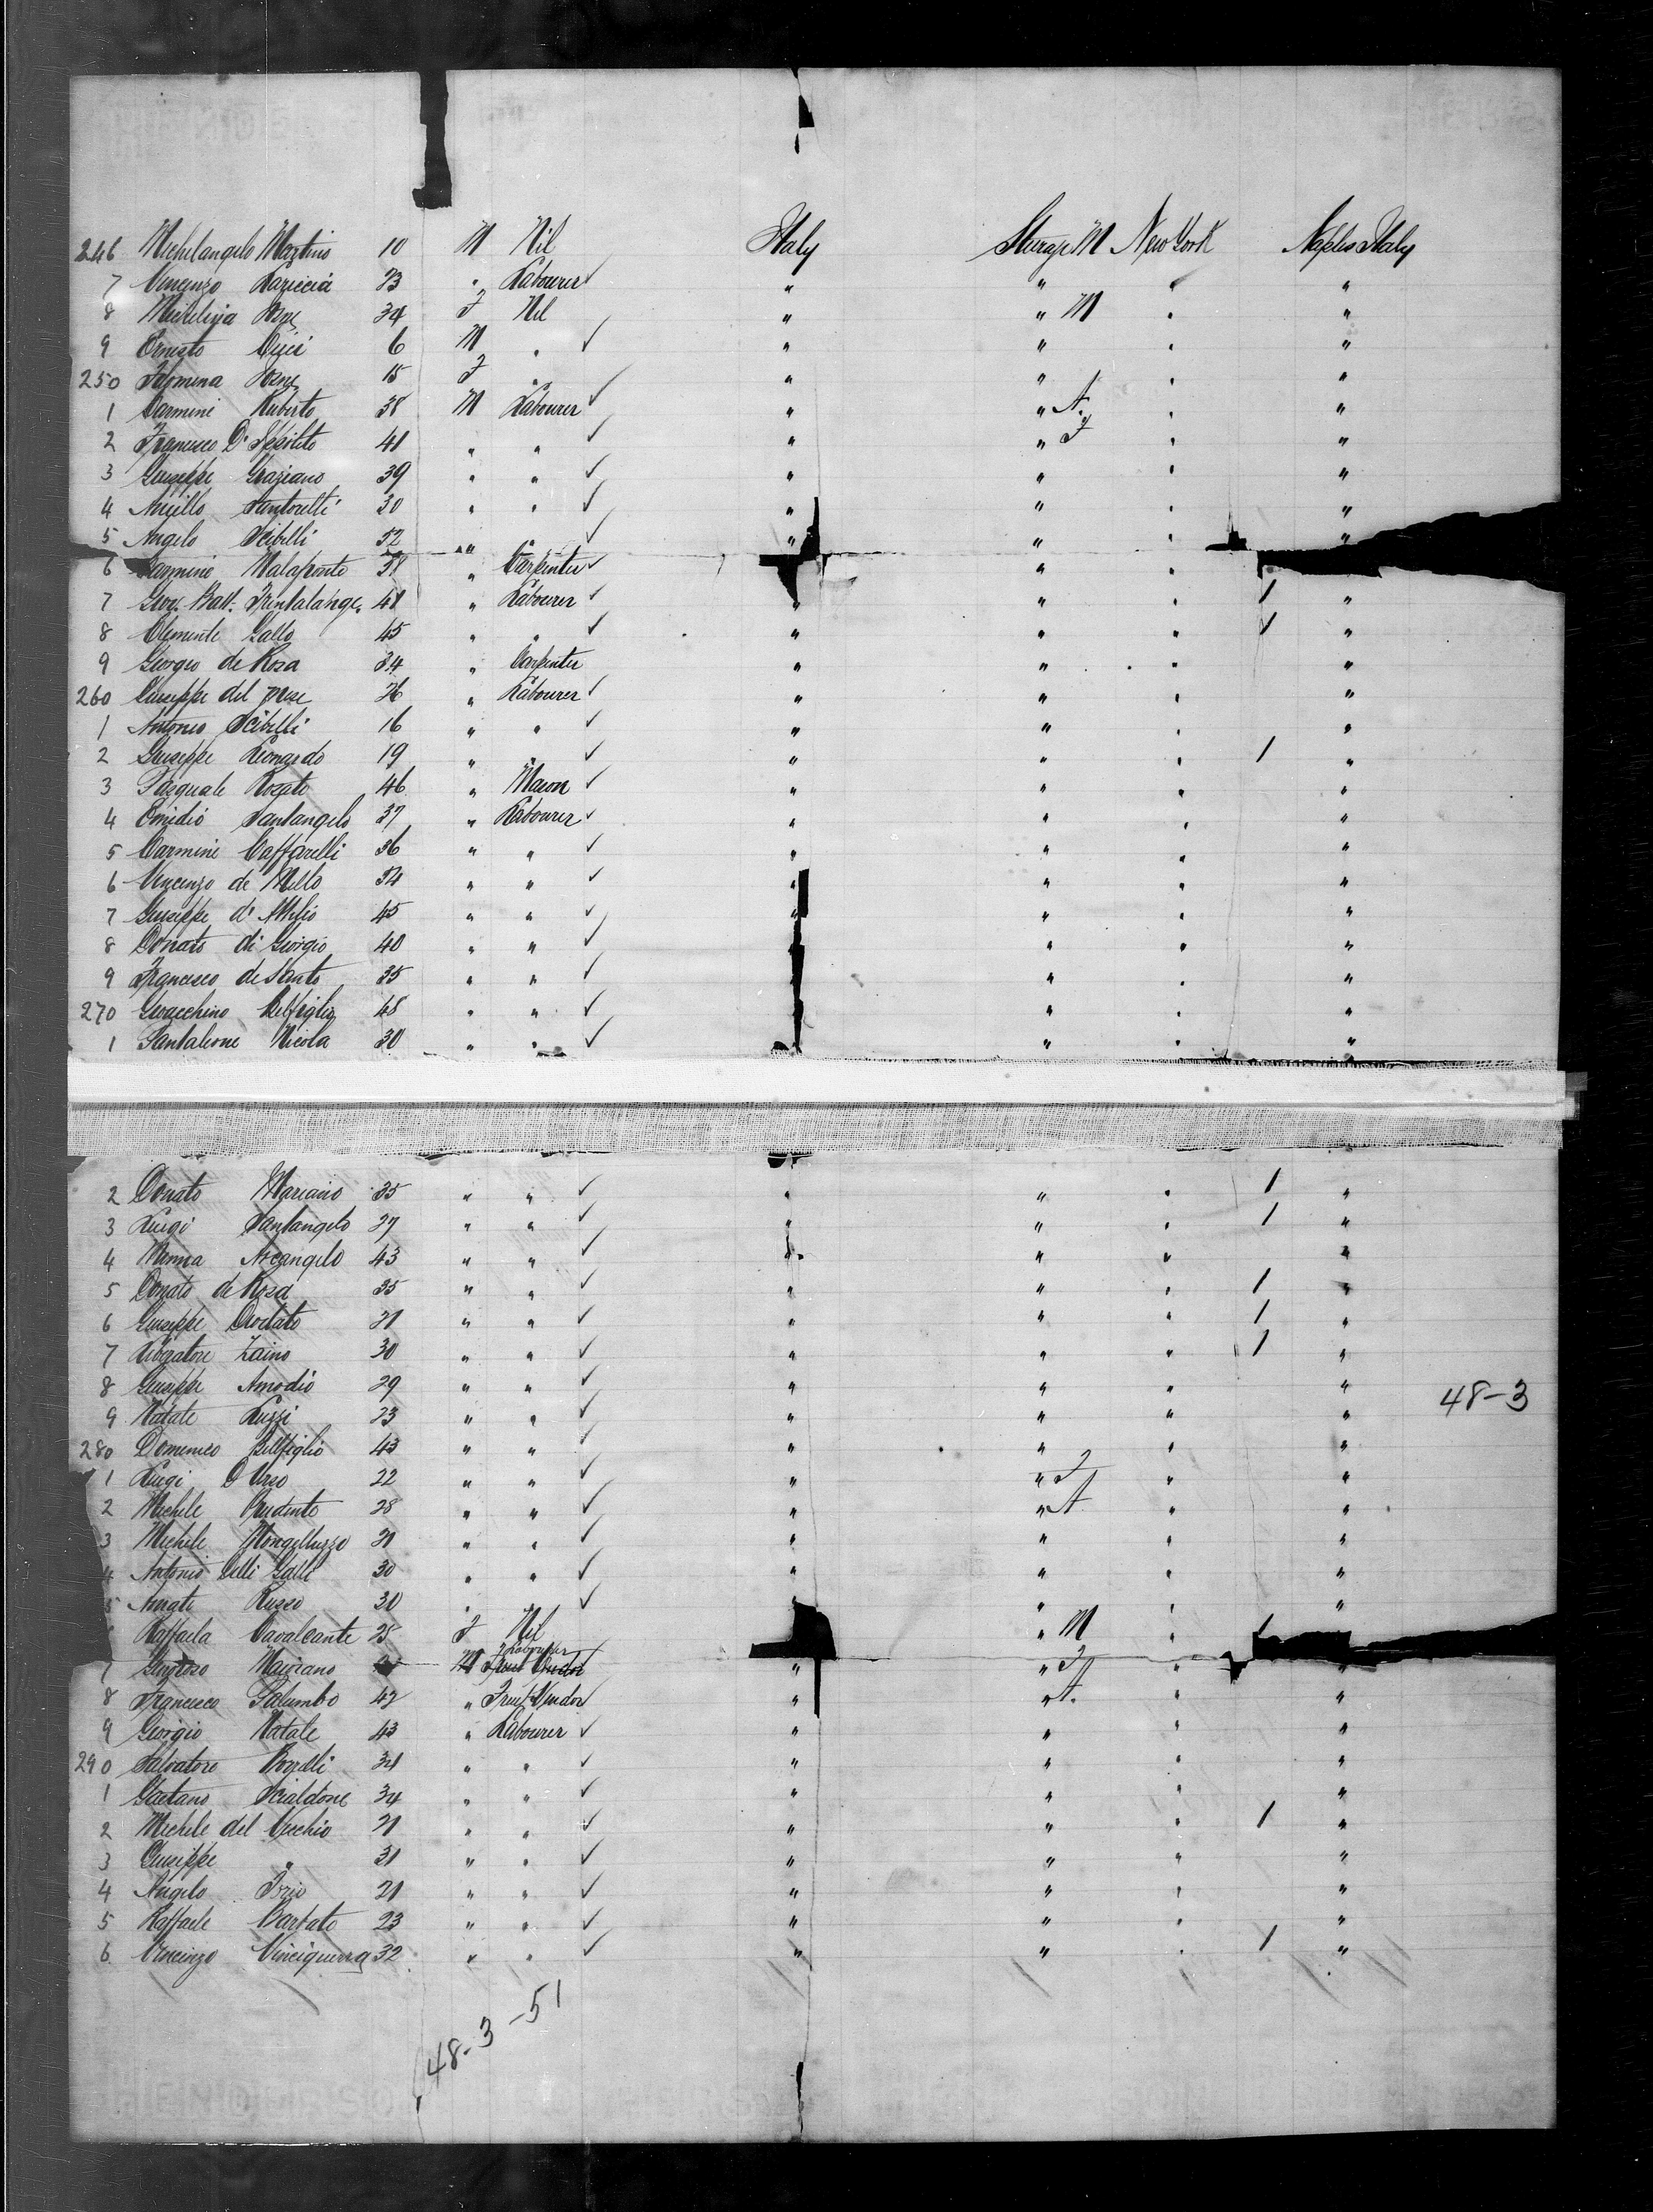 246 Michelangelo Martino 10 M Nil Italy Steerage M New York Naples Italy
7 Vincenzo 23 " Labourer ✓ " " " "
8 34 F Nil " " M " "
9 Ernesto 6 M " ✓ " " " "
250 Filomena 15 F " " " " "
1 Carmine Ruberto 38 M Labourer ✓ " " A. " "
2 Francesco D' 41 " " ✓ " " F " "
3 Giuseppe Graziano 39 " " ✓ " " " "
4 Aniello Santorelli 30 " " ✓ " " " "
5 Angelo Scibelli 52 " " ✓ " " " "
6 Carmine Malaponte 38 " Carpenter ✓ " "
7 Giov. Batt. Trentalange 41 " Labourer ✓ " " " / "
8 Clemente Gallo 45 " " ✓ " " " / "
9 Giorgio de Rosa 34 " Carpenter " " " "
260 Giuseppe del 26 " Labourer ✓ " " " "
1 Antonio Scibelli 16 " " ✓ " " " "
2 Giuseppe Leonardo 19 " " ✓ " " " / "
3 Pasquale Rosato 46 " Mason ✓ " " " "
4 Emidio Santangelo 37 " Labourer ✓ " " " "
5 Carmine Caffarelli 36 " " ✓ " " " "
6 Vincenzo de Mello 34 " " ✓ " " " "
7 Giuseppe 45 " " ✓ " " " "
8 Donato di Giorgio 40 " " ✓ " " " "
9 Francesco de Santo 35 " " ✓ " " " "
270 Gioacchino Belfiglio 48 " " ✓ " " " "
1 Pantaleone Nicola 30 " " ✓ " " "
2 Donato Mariano 35 " " ✓ " " " / "
3 Luigi Santangelo 27 " " ✓ " " " / "
4 Manna Arcangelo 43 " " ✓ " " " "
5 Donato de Rosa 35 " " ✓ " " " / "
6 Giuseppe Diodato 21 " " ✓ " " " / "
7 Zaino 30 " " ✓ " " " / "
8 Giuseppe Amodio 29 " " ✓ " " " " 48-3
9 Natale Luzzi 23 " " ✓ " " " "
280 Domenico Belfiglio 43 " " ✓ " " " "
1 Luigi D'Urso 22 " " ✓ " " F " "
2 Michele Prudente 28 " " ✓ " " A " "
3 Michele Mongelluzzo 21 " " ✓ " " " "
4 Antonio delli Galli 30 " " ✓ " " " "
5 Amato Russo 30 " " ✓ " " " "
Raffaela Cavalcante 25 F Nil " M "
Mariano M Labourer Fruit Vendor " " F " "
8 Francesco Palumbo 42 " Fruit Vendor ✓ " " A. " "
9 Giorgio Natale 43 " Labourer ✓ " " " "
290 Salvatore Borrelli 34 " " ✓ " " " "
1 Gaetano Scialdone 34 " " ✓ " " " "
2 Michele del Vecchio 21 " " ✓ " " " / "
3 Giuseppe " 31 " " ✓ " " " "
4 Angelo Iorio 21 " " ✓ " " " "
5 Raffaele Barbato 23 " " ✓ " " " "
6 Vincenzo Vinciguerra 32 " " ✓ " " " / "
48-3-51